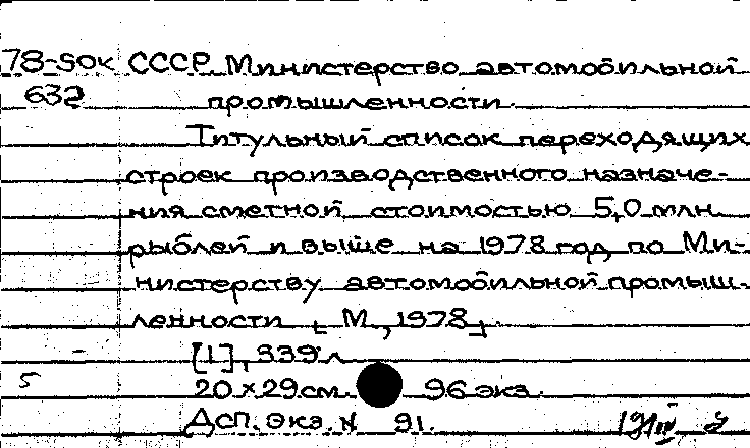 78-5ок СССР Министерство автомобильной
632 промышленности.
Титульный список переходящих
строек производственного назначе-
ния сметной стоимостью 5,0 млн.
рублей и выше на 1978 год по Ми-
нистерству автомобильной промыш-
ленности. [М., 1978].
[1], 339 л.
5 20 × 29 см. 96 экз.
Дсп. Экз. № 91.